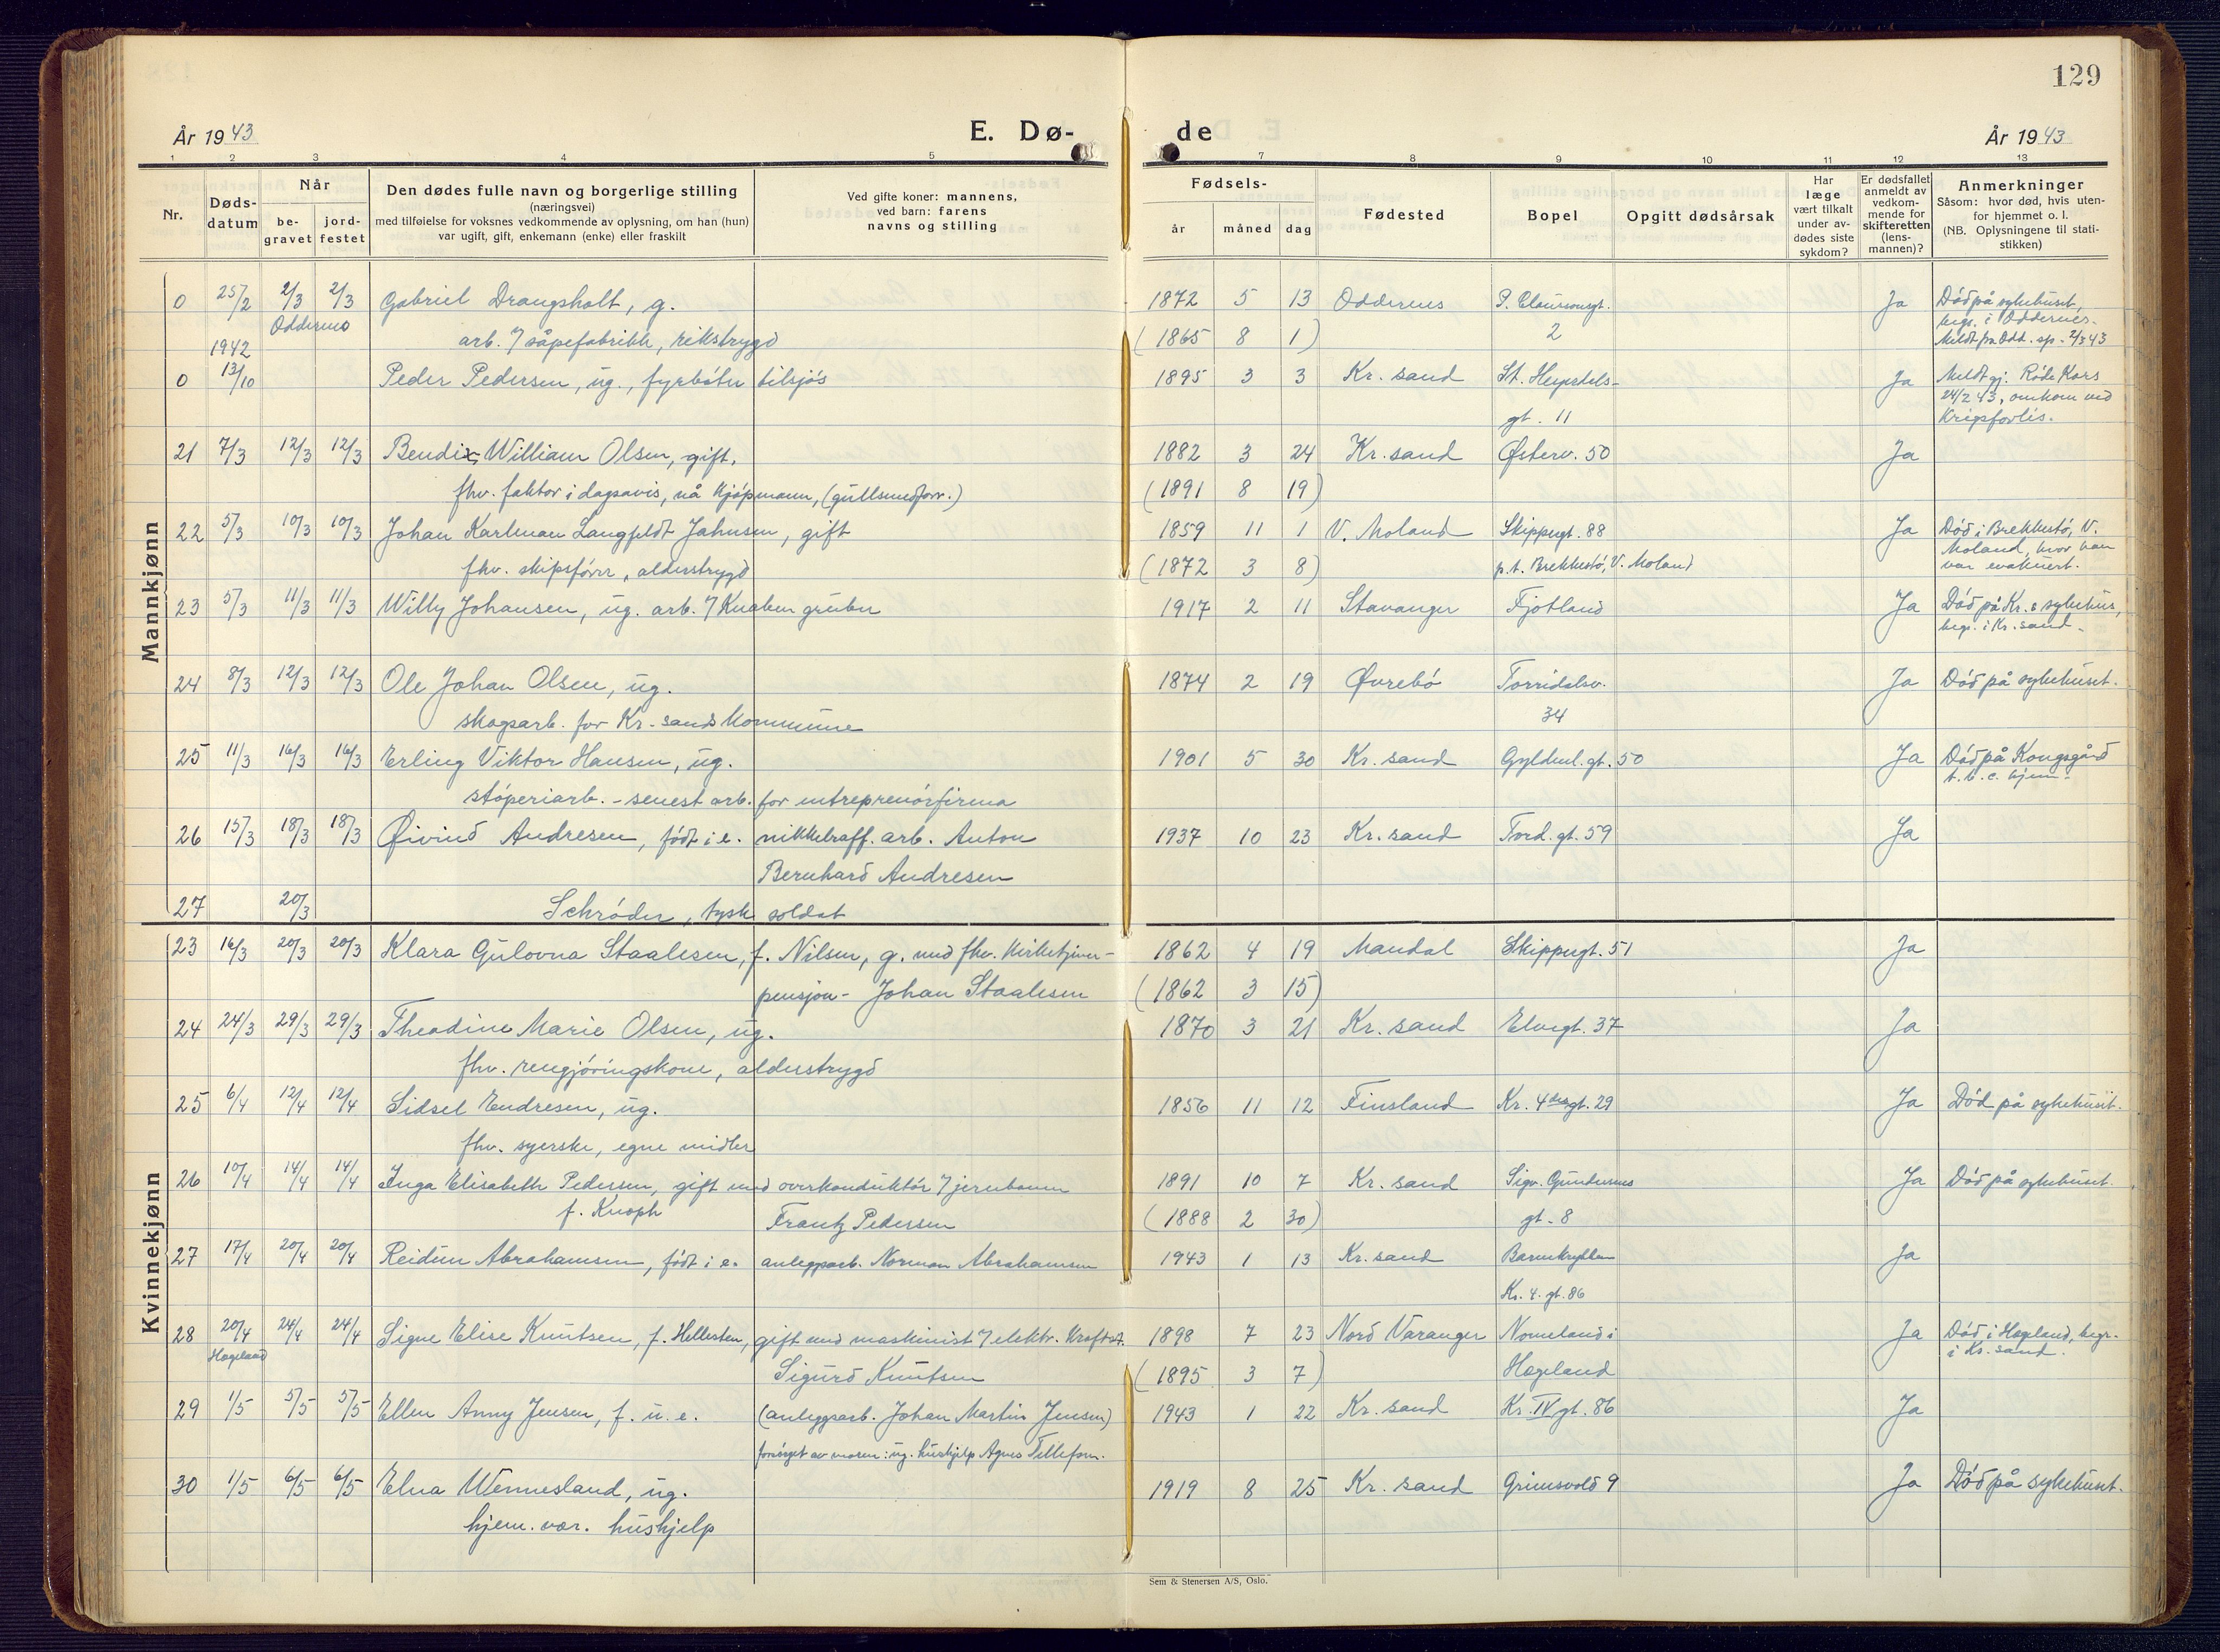 129
År 1943
E. Dø-
de
År 1943
1 2 3 4 5 7 8 9 10 11 12 13
Nr.
Døds-
datum
Når
be-
gravet
jord-
festet
Den dødes fulle navn og borgerlige stilling
(næringsvei)
med tilføielse for voksnes vedkommende av oplysning, om han (hun)
var ugift, gift, enkemann (enke) eller fraskilt
Ved gifte koner: mannens,
ved barn: farens
navns og stilling
Fødsels-
år måned dag
Fødested
Bopel
Opgitt dødsårsak
Har
læge
vært tilkalt
under av-
dødes siste
sykdom?
Er dødsfallet
anmeldt av
vedkom-
mende for
skifteretten
(lens-
mannen)?
Anmerkninger
Såsom: hvor død, hvis uten-
for hjemmet o. l.
(NB. Oplysningene til stati-
stikken)
Mannkjønn
0 25/2 2/3 2/3 Gabriel Drangsholt, g. 1872 5 13 Oddernes P. Claussonsgt. Ja Død på sykehuset,
Oddernes begr. i Oddernes.
arb. / såpefabrikk, rikstrygd (1865 8 1) 2 Meldt fra Odd. sp. 2/3 43
1942
0 13/10 Peder Pedersen, ug., fyrbøter tilsjøs 1895 3 3 Kr. sand St. Hans Ja Meldt gj. Røde Kors
24/2 43, omkom ved
gt. 11 Krigsforlis.
21 7/3 12/3 12/3 Bendix William Olsen, gift, 1882 3 24 Kr. sand Østerv. 50 Ja
fhv. faktor i dagsavis, nå kjøpmann, (gullsmedforr.) (1891 8 19)
22 5/3 10/3 10/3 Johan Karlman Langfeldt Jahnsen, gift 1859 11 1 V. Moland Skippergt. 88 Ja Død i Brekkestø, V.
Moland, hvor han
fhv. skipsfører, alderstrygd (1872 3 8) p.t. Brekkestø, V. Moland var evakuert.
23 5/3 11/3 11/3 Willy Johansen, ug. arb. / Knaben gruber 1917 2 11 Stavanger Fjotland Ja Død på Kr. s sykehus,
begr. i Kr. sand.
24 8/3 12/3 12/3 Ole Johan Olsen, ug. 1874 2 19 Øvrebø Torridalsv. Ja Død på sykehuset.
skogsarb. for Kr. sands kommune 34
25 11/3 16/3 16/3 Erling Viktor Hansen, ug. 1901 5 30 Kr. sand Gyldenl. gt. 50 Ja Død på Kongsgård
t.b.c. hjem.
støperiarb. - senest arb. for entreprenørfirma
26 15/3 18/3 18/3 Øivind Andresen, født i e. nikkelraff. arb. Anton 1937 10 23 Kr. sand Tord. gt. 59 Ja
Bernhard Andresen
27 20/3 Schrøder, tysk soldat
Kvinnekjønn
23 16/3 20/3 20/3 Klara Gulovna Staalesen, f. Nilsen, g. med fhv. kirketjener- 1862 4 19 Mandal Skippergt. 51 Ja
pensjon- Johan Staalesen (1862 3 15)
24 24/3 29/3 29/3 Theodine Marie Olsen, ug. 1870 3 21 Kr. sand Elvegt. 37 Ja
fhv. rengjøringskone, alderstrygd
25 6/4 12/4 12/4 Sidsel Endresen, ug. 1856 11 12 Finsland Kr. 4des gt. 29 Ja Død på sykehuset.
fhv. syerske, egne midler
26 10/4 14/4 14/4 Inga Elisabeth Pedersen, gift med overkonduktør / jernbanen 1891 10 7 Kr. sand Sigv. Gundersens Ja Død på sykehuset.
f. Knoph Frantz Pedersen (1888 2 30) gt. 8
27 17/4 20/4 20/4 Reidun Abrahamsen, født i e. anleggsarb. Norman Abrahamsen 1943 1 13 Kr. sand Barnekrybben Ja
Kr. 4. gt. 86
28 20/4 24/4 24/4 Signe Elise Knutsen, f. Hellesten, gift med maskinist / elektr. kraftst. 1898 7 23 Nord Varanger Nomeland i Ja Død i Hægeland, begr.
Hægeland i Kr. sand.
Sigurd Knutsen (1895 3 7) Hægeland
29 1/5 5/5 5/5 Ellen Anny Jensen, f. u. e. (anleggsarb. Johan Martin Jensen) 1943 1 22 Kr. sand Kr. IV gt. 86 Ja
forsørget av moren: ug. hushjelp Agnes Tellefsen.
30 1/5 6/5 6/5 Elna Wennesland, ug. 1919 8 25 Kr. sand Grimsvold 9 Ja Død på sykehuset.
hjem. vær. hushjelp
Sem & Stenersen A/S, Oslo.